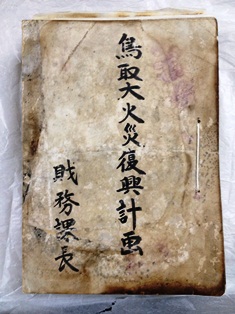 鳥取大火災復興計画
財務課長